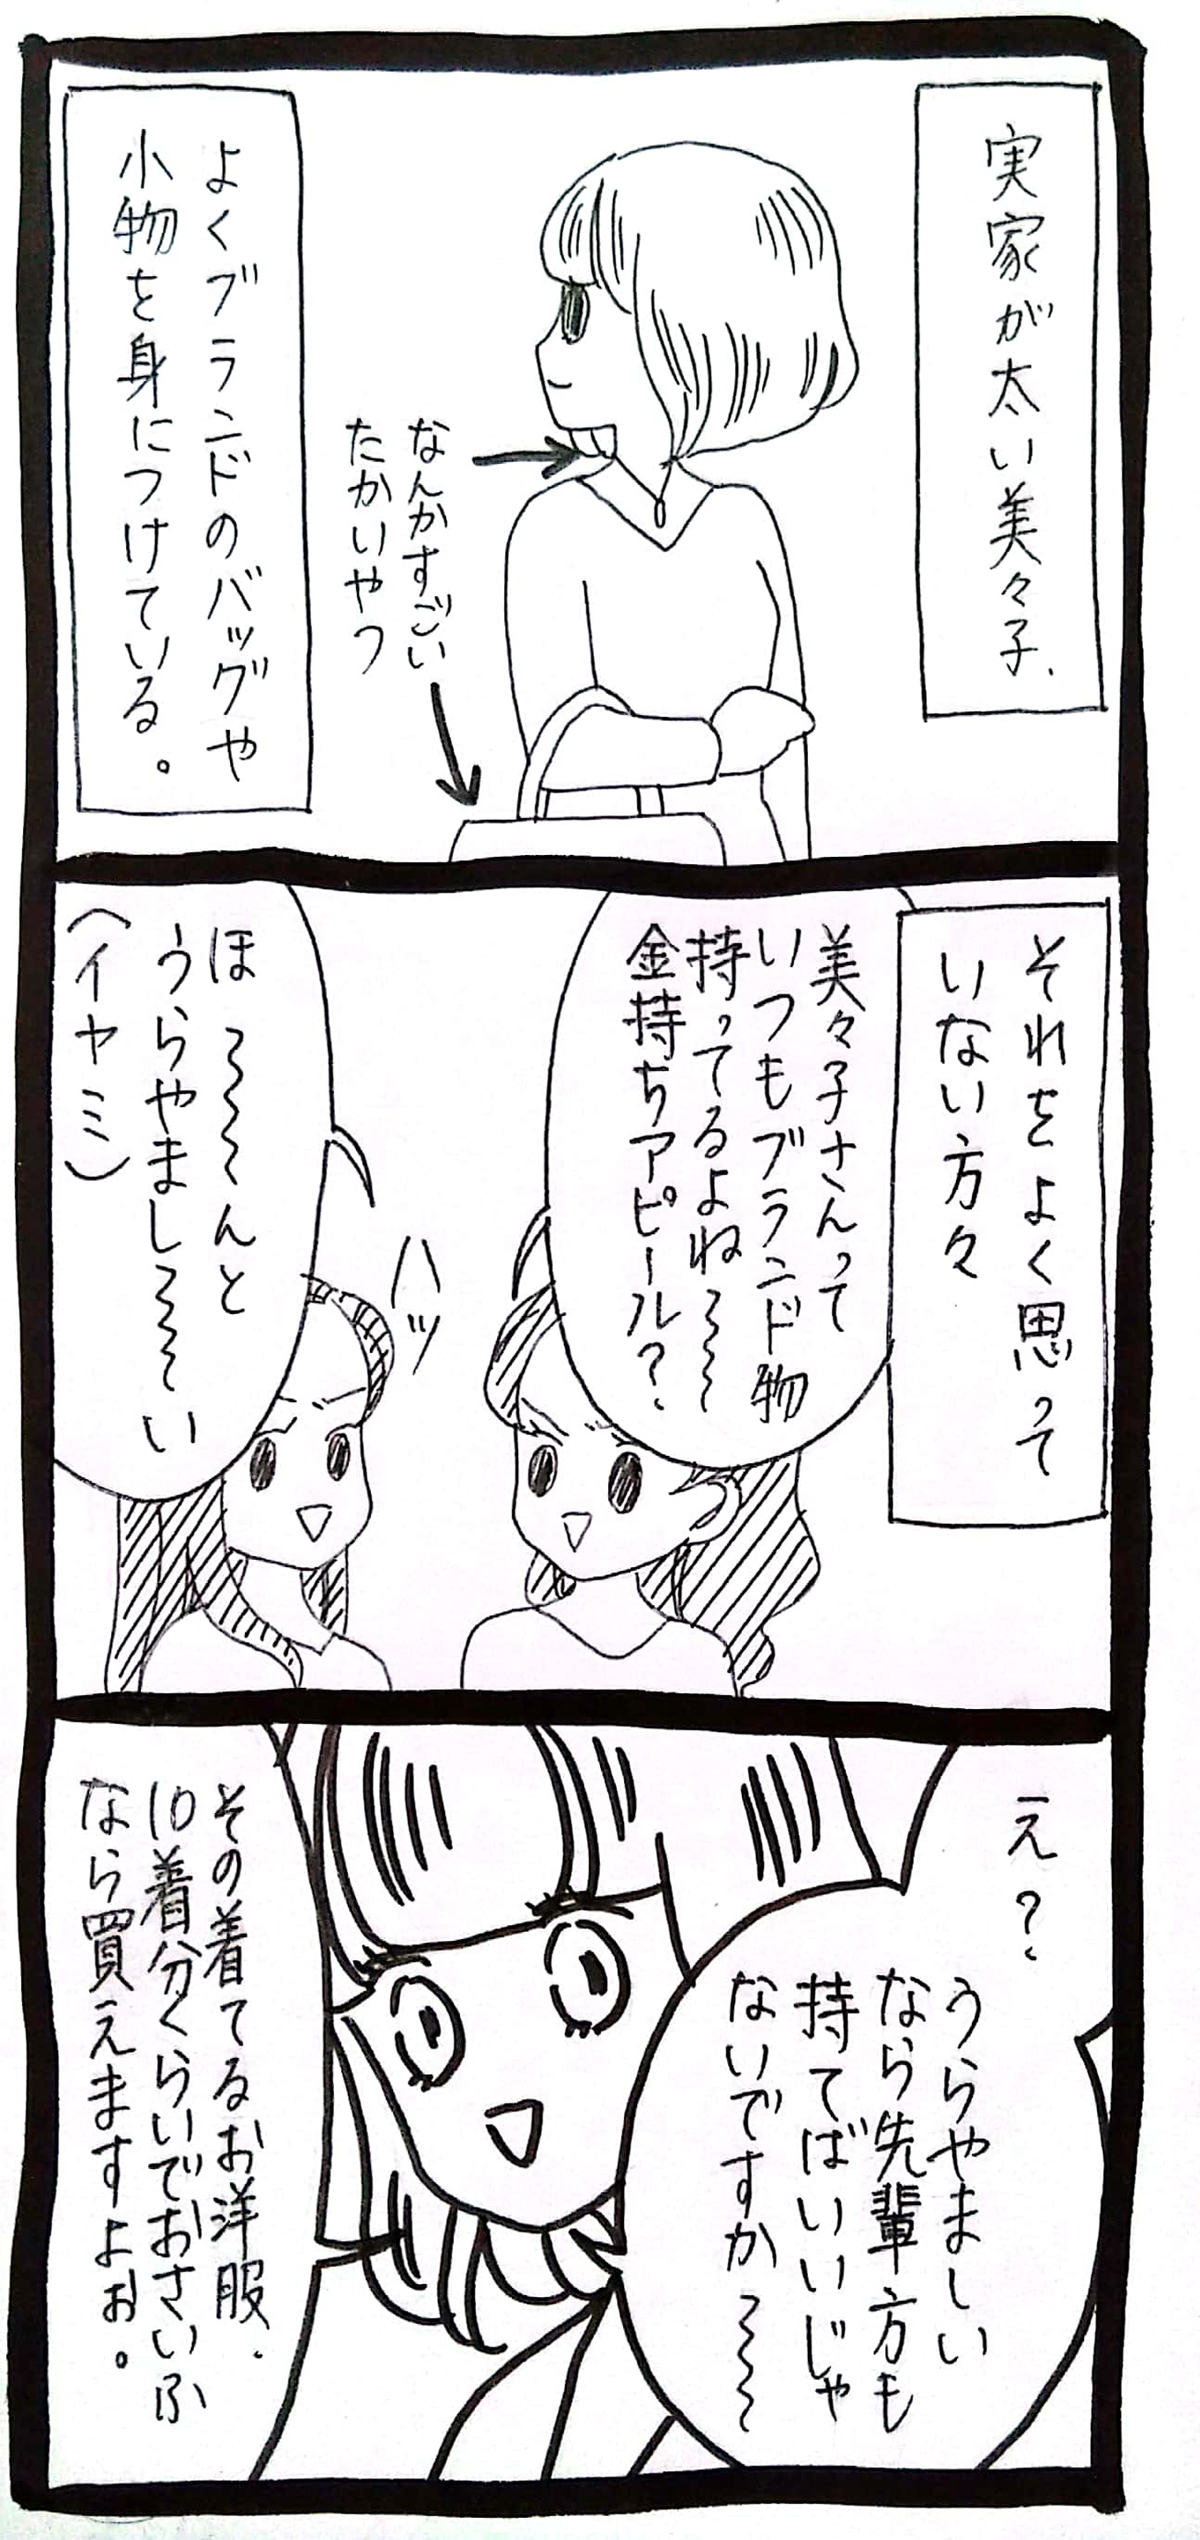 実家が太い美々子、
なんかすごい
たかいやつ
よくブランドのバッグや
小物を身につけている。
それをよく思って
いない方々
美々子さんって
いつもブランド物
持ってるよね~~~
金持ちアピール?
ハッ
ほ~~~んと
うらやまし~~~い
(イヤミ)
え?
うらやましい
なら先輩方も
持てばいいじゃ
ないですか~~~
その着てるお洋服、
10着分くらいでおさいふ
なら買えますよぉ。